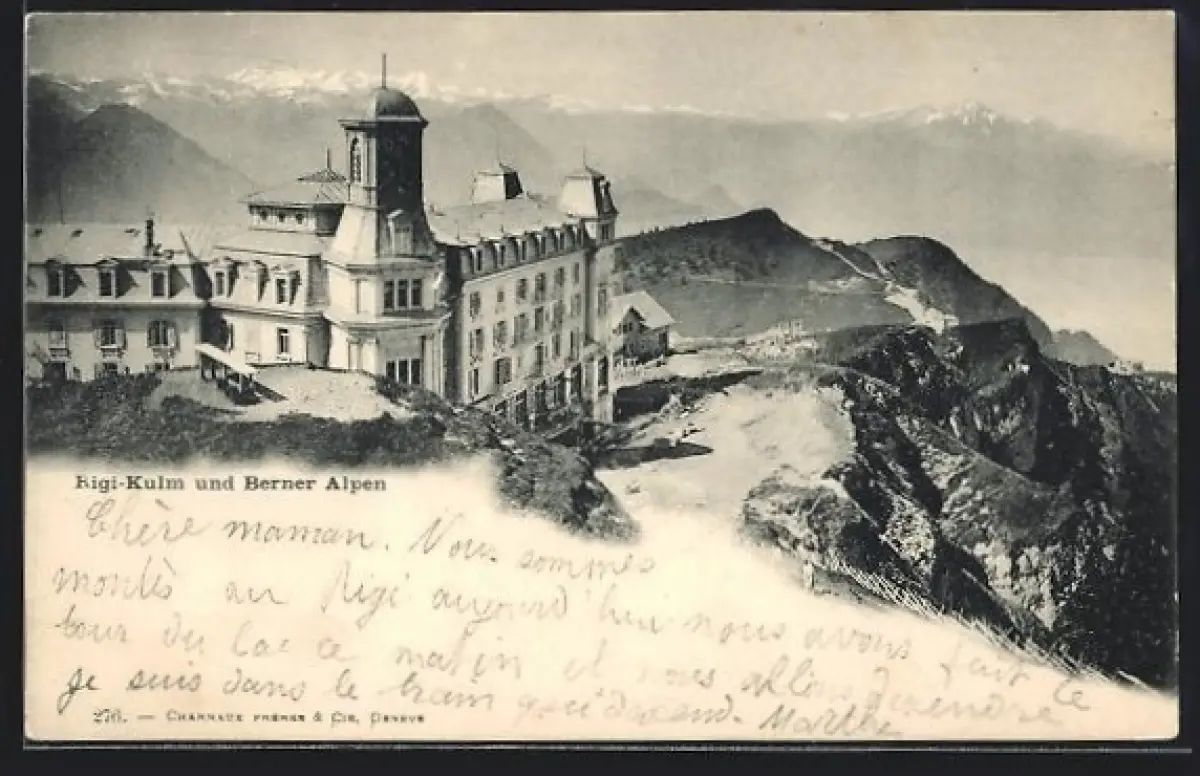 Rigi-Kulm und Berner Alpen
Chère maman. Nous sommes
montés au Rigi aujourd'hui nous avons fait le
tour du lac ce matin et nous allons
je suis dans le train qui descend. Marthe
276. — CHARNAUX FRÈRES & CIE, GENÈVE